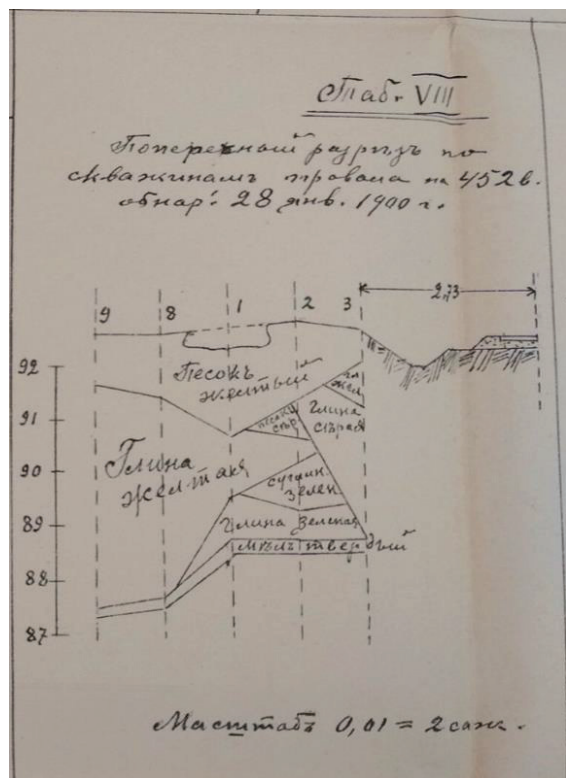 Таб. VIII
Поперечный разрѣзъ по
скважинамъ провала на 452 в.
обнар. 28 янв. 1900 г.
9 8 1 2 3 2,73
92
Песокъ
желтый
гл.
жел.
91
песокъ
сѣр.
Глина
сѣрая
Глина
желтая
90
суглин.
зелен.
89
Глина зеленая
Мѣлъ твердый
88
87
Масштабъ 0,01 = 2 саж.